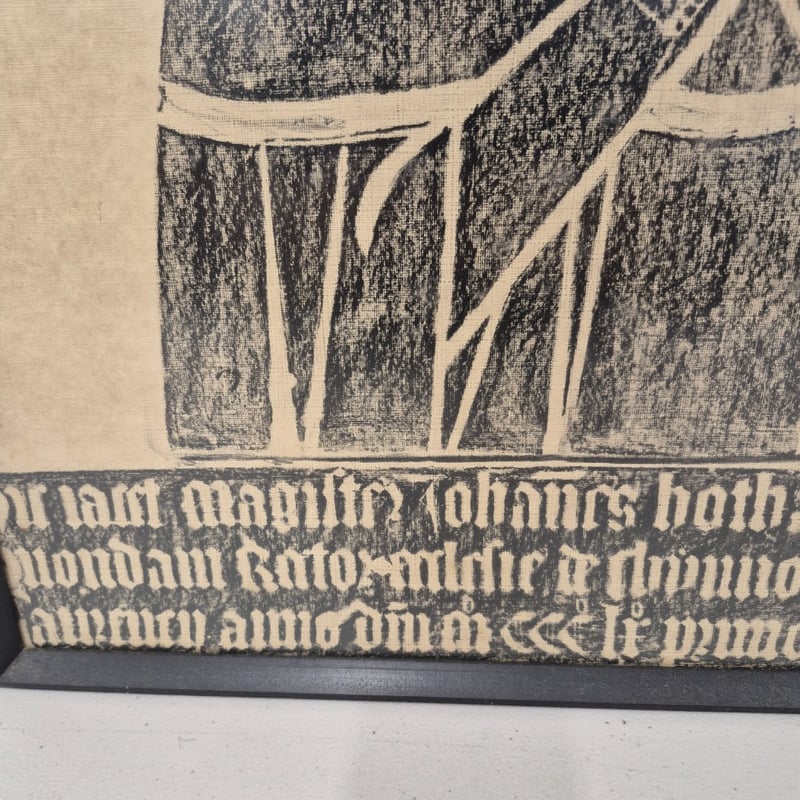 hic iacet Magister Johannes both
quondam Rector ecclesie de
laurencii anno dñi mº cccº lxº primo